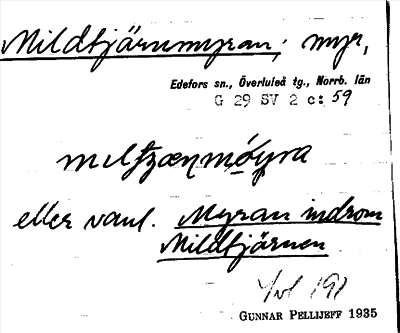 Mildtjärnmyran; myr,
Edefors sn., Överluleå tg., Norrb. län
G 29 SV 2 c: 59
eller vanl. Myran indrom
Mildtjärnen
GUNNAR PELLIJEFF 1935